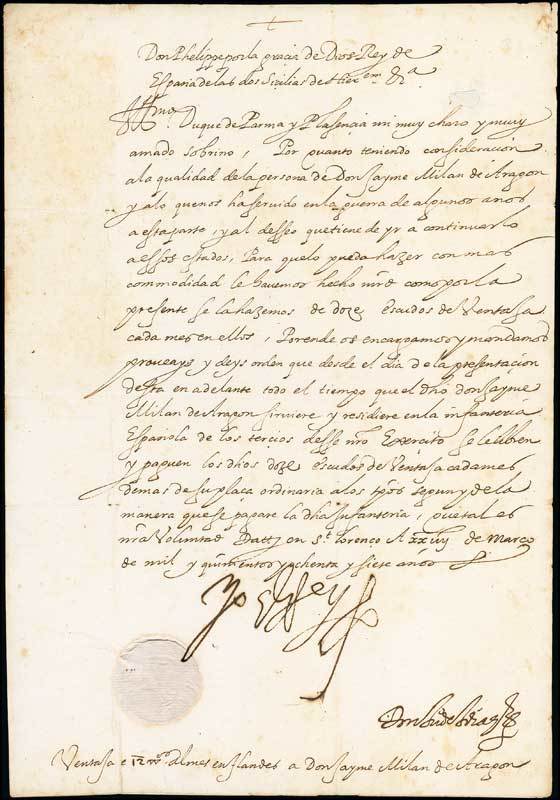 Don Phelippe por la gracia de Dios Rey de
España de las dos Sicilias de Hier.em &.a
Duque de Parma y Plasencia mi muy charo y muy
amado sobrino, Por quanto teniendo consideracion
a la qualidad de la persona de Don Jayme Milan de Aragon
y a lo que nos ha seruido en la guerra de algunos años
a esta parte, y al desseo que tiene de yr a continuarlo
a essos estados, Para que lo pueda hazer con mas
commodidad le hauemos hecho mrd como por la
presente se la hazemos de doze escudos de Ventaja
cada mes en ellos, Porende os encargamos y mandamos
proueays y deys orden que desde el dia de la presentaçion
desta en adelante todo el tiempo que el dho don Jayme
Milan de Aragon siruiere y residiere en la infanteria
Española de los tercios desse nro Exercito se le libren
y paguen los dhos doze escudos de Ventaja cada mes
demas de su plaça ordinaria a los tpos segun y de la
manera que se pagare la dha Infanteria, que tal es
nra Voluntad Datt en St. Lorenço A xxviij de Março
de mil y quinientos y ochenta y siete años
Yo el Rey
Ventaja de 12 al mes en flandes a Don Jayme Milan de Aragon